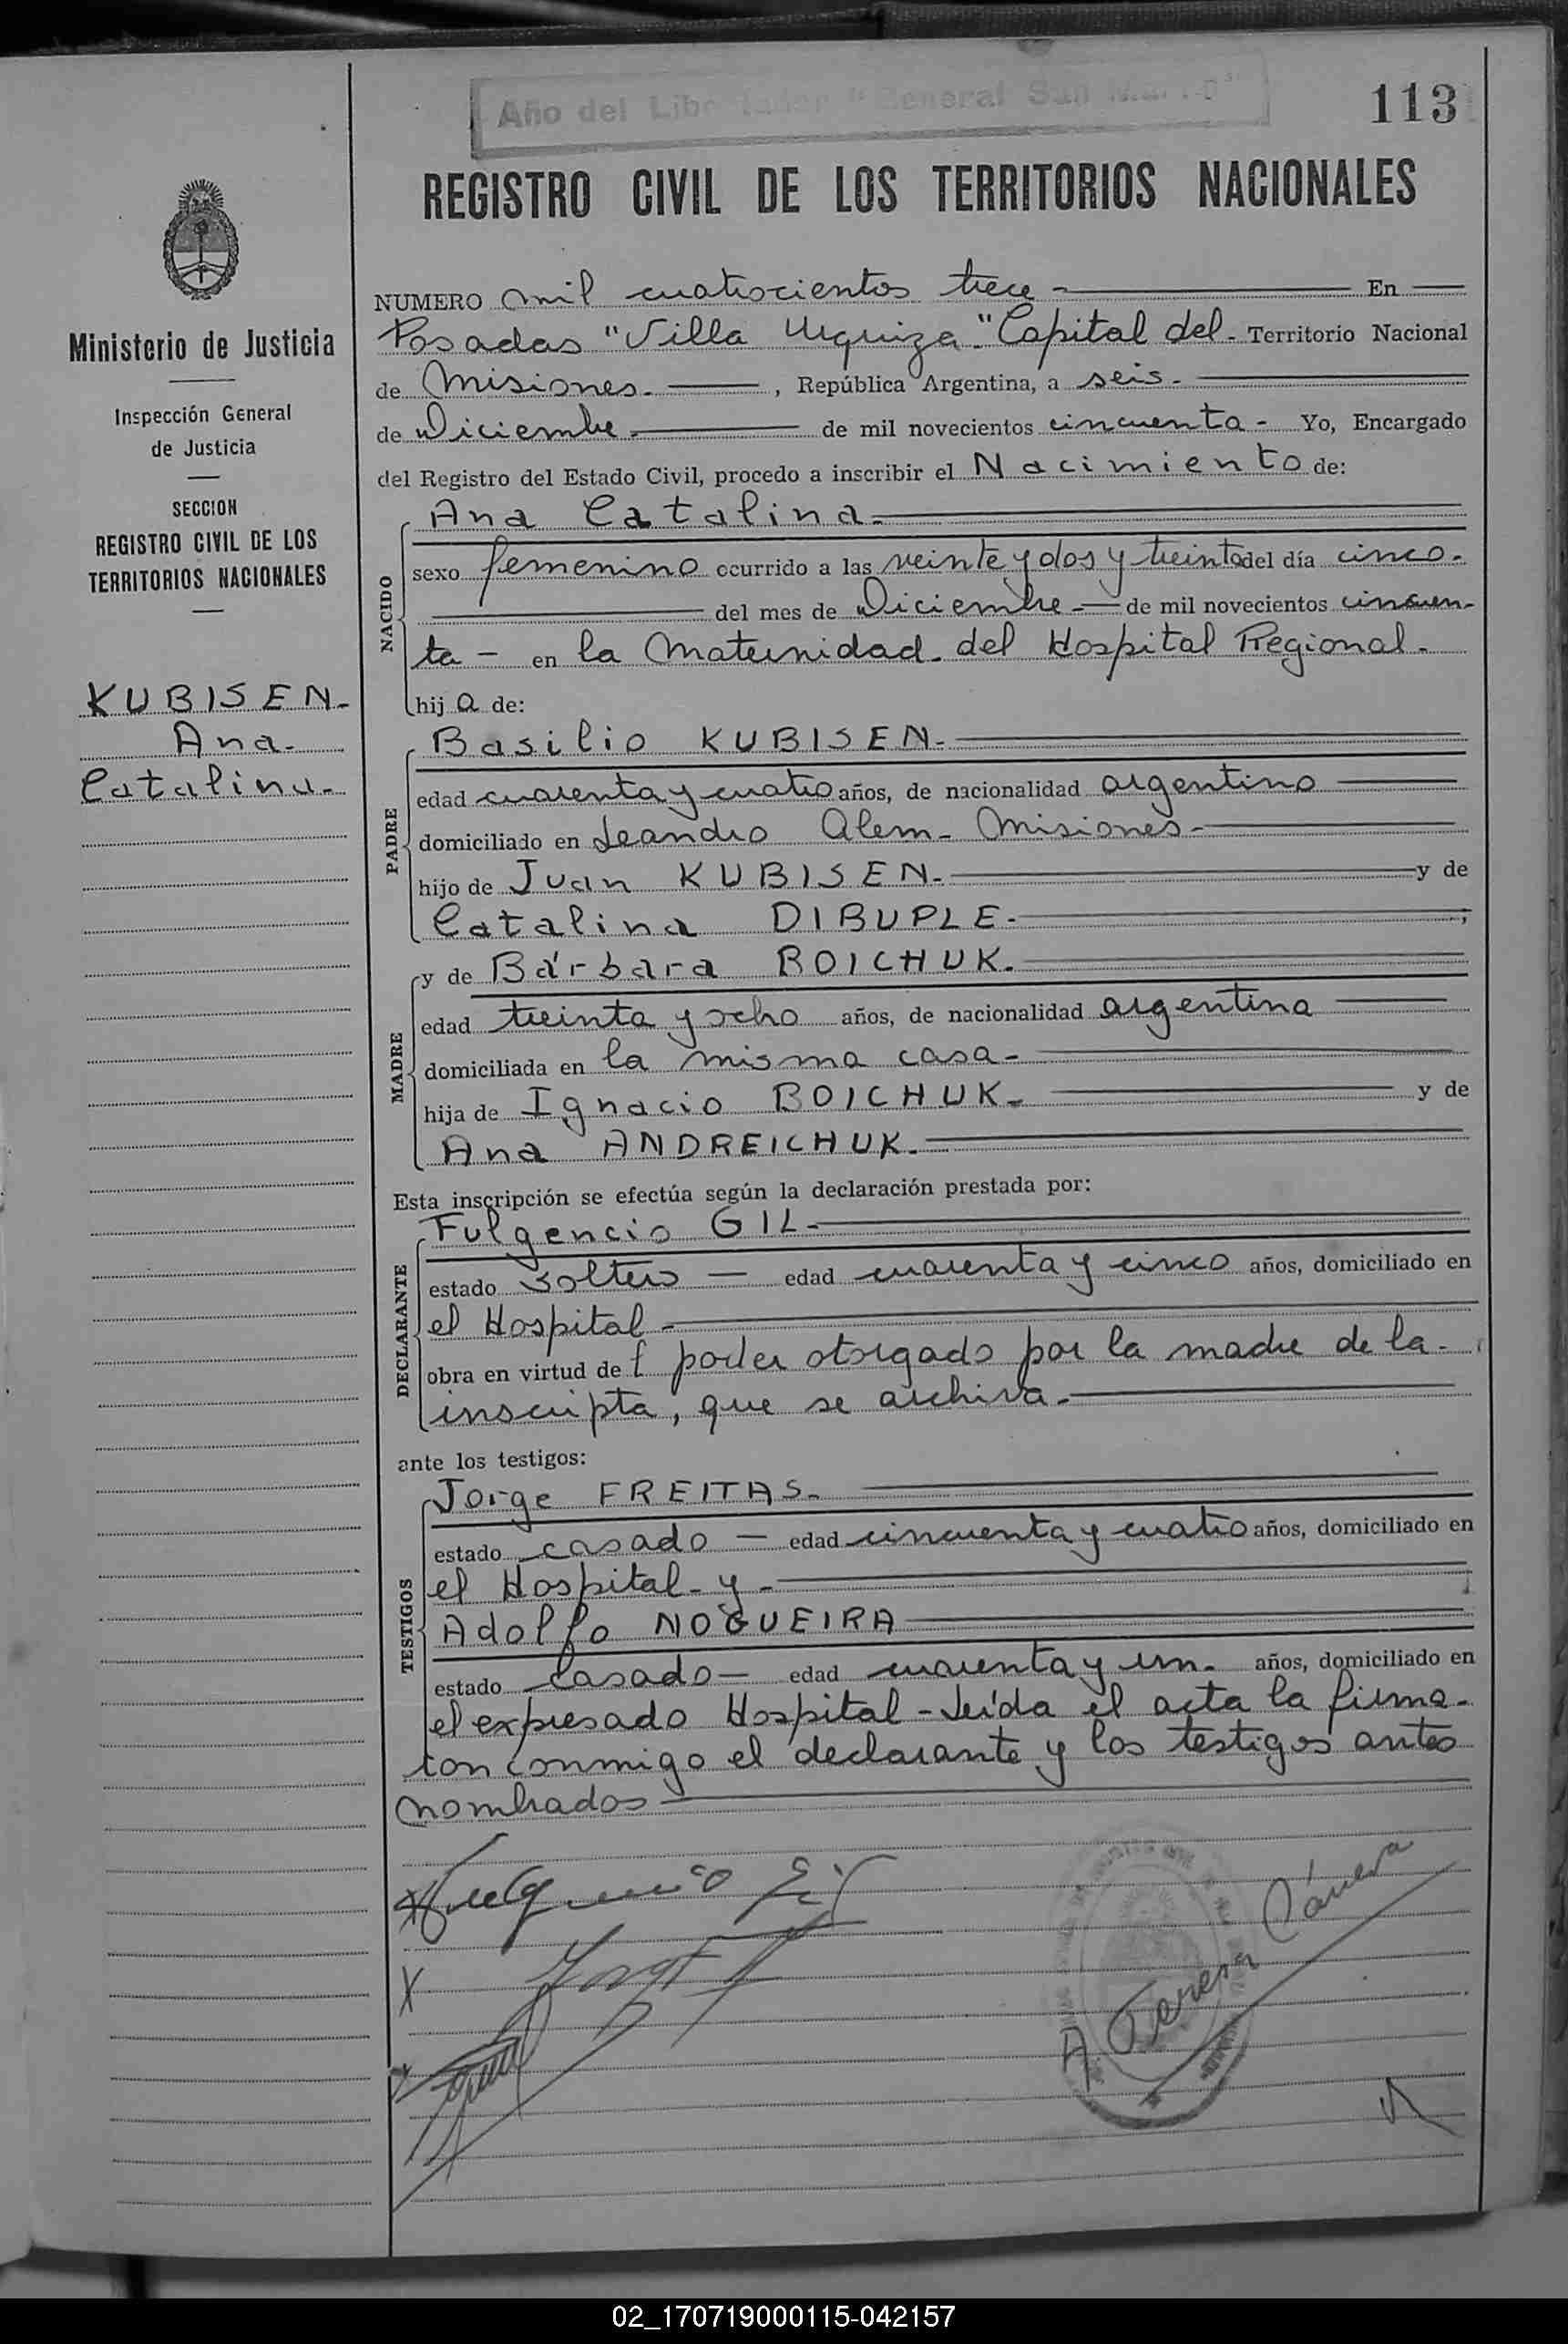 Año del Libertador "General San Martín"
113
REGISTRO CIVIL DE LOS TERRITORIOS NACIONALES
Ministerio de Justicia
Inspección General
de Justicia
SECCION
REGISTRO CIVIL DE LOS
TERRITORIOS NACIONALES
KUBISEN-
Ana-
Catalina-
NUMERO mil cuatrocientos trece - En
Posadas "Villa Urquiza". Capital del- Territorio Nacional
de Misiones.- , República Argentina, a seis.-
de Diciembre.- de mil novecientos cincuenta- Yo, Encargado
del Registro del Estado Civil, procedo a inscribir el Nacimiento de:
NACIDO
Ana Catalina.-
sexo femenino ocurrido a las veinte y dos y treinta del día cinco.-
del mes de Diciembre.- de mil novecientos cincuen-
ta - en la Maternidad. del Hospital Regional.-
hij a de:
PADRE
Basilio KUBISEN.-
edad cuarenta y cuatro años, de nacionalidad argentino
domiciliado en Leandro Alem- Misiones-
hijo de Juan KUBISEN.- y de
Catalina DIBUPLE.- ;
MADRE
y de Bárbara BOICHUK.-
edad treinta y ocho años, de nacionalidad argentina
domiciliada en la misma casa-
hija de Ignacio BOICHUK.- y de
Ana ANDREICHUK.-
Esta inscripción se efectúa según la declaración prestada por:
DECLARANTE
Fulgencio GIL-
estado soltero - edad cuarenta y cinco años, domiciliado en
el Hospital-
obra en virtud de l poder otorgado por la madre de la-
inscripta, que se archiva.-
ante los testigos:
TESTIGOS
Jorge FREITAS.-
estado casado - edad cincuenta y cuatro años, domiciliado en
el Hospital- y -
Adolfo NOGUEIRA
estado Casado- edad cuarenta y un- años, domiciliado en
el expresado Hospital-Leída el acta la firma-
ron conmigo el declarante y los testigos antes
nombrados-
Fulgencio Gil
02_170719000115-042157